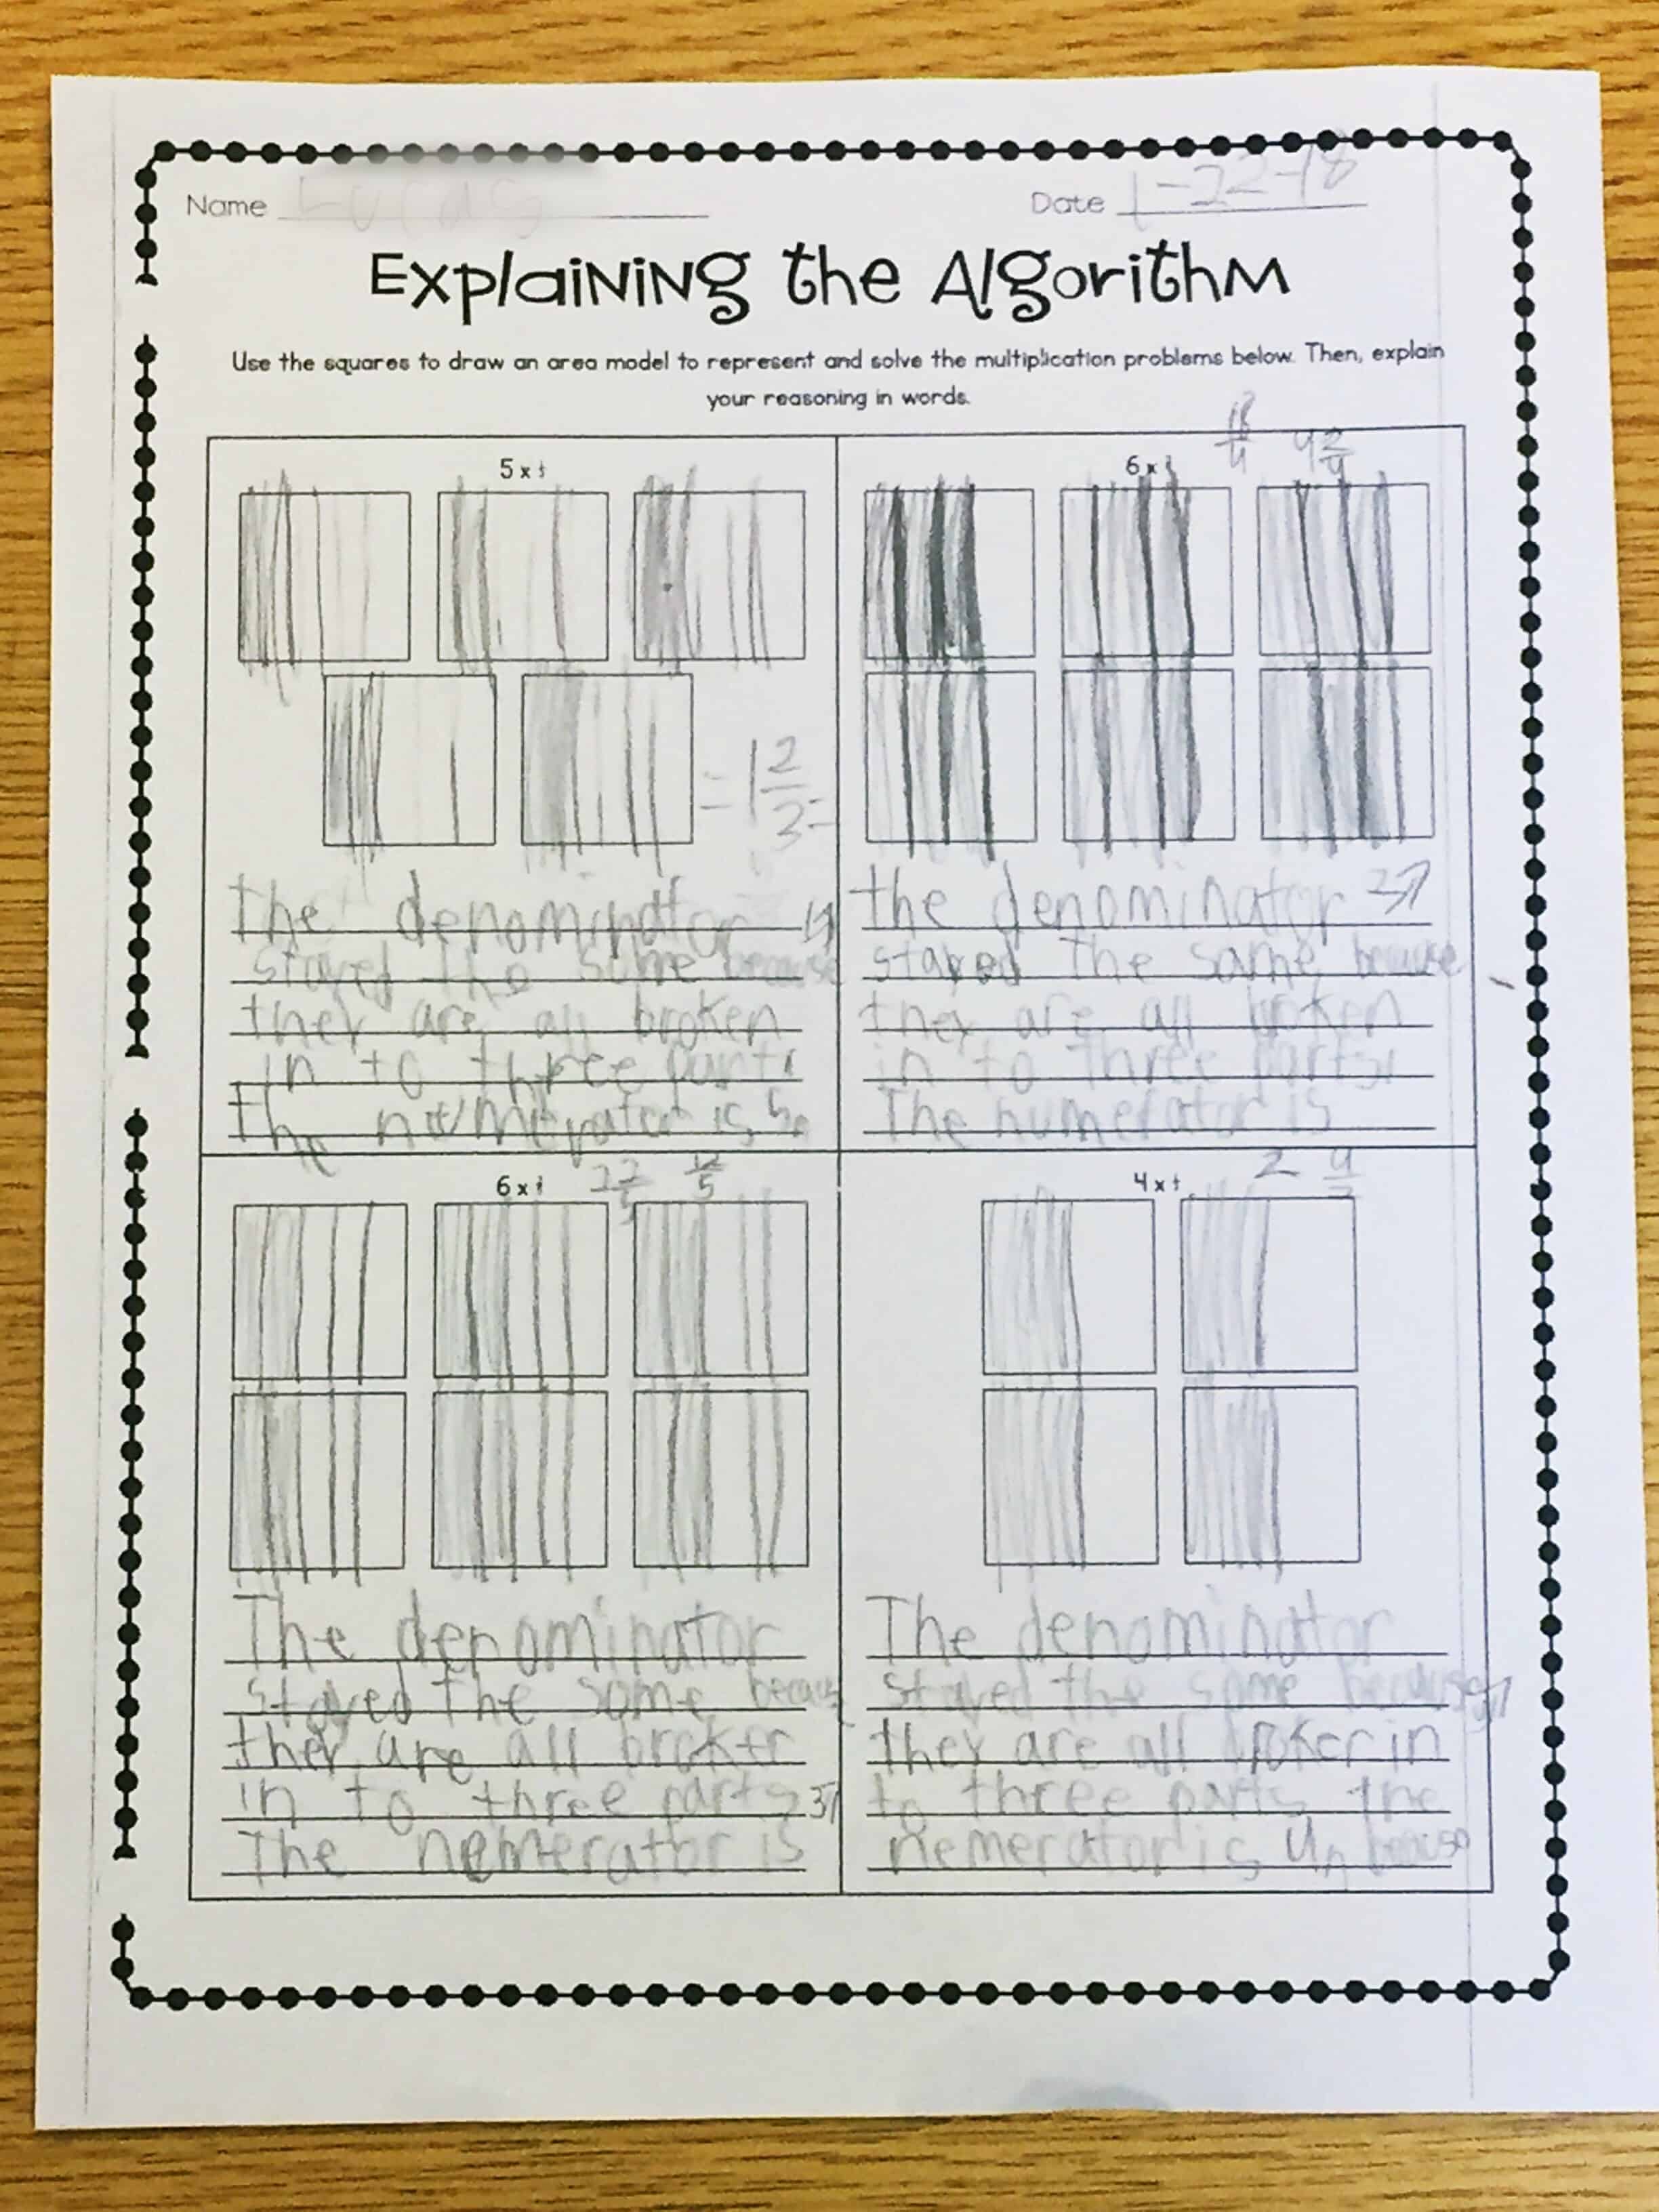 Name Lucas Date 1-22-18
Explaining the Algorithm
Use the squares to draw an area model to represent and solve the multiplication problems below. Then, explain
your reasoning in words.
5 x
= 1 2/3
the denominator
stayed the same because
they are all broken
in to three parts
the numerator is 5
6 x
18/4 4 2/4
the denominator
stayed the same because
they are all broken
in to three parts
The numerator is
6 x
2 2/5 12/5
The denominator
stayed the same becaus
they are all broken
in to three parts
The nemerator is
4 x
2
The denominator
stayed the same because
they are all broken in
to three parts the
nemerator is because